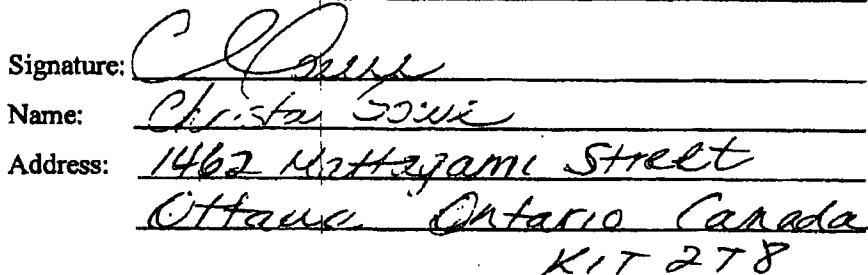 Signature:
Name: Christa
Address: 1462 Mattagami Street
Ottawa Ontario Canada
K1T 2T8